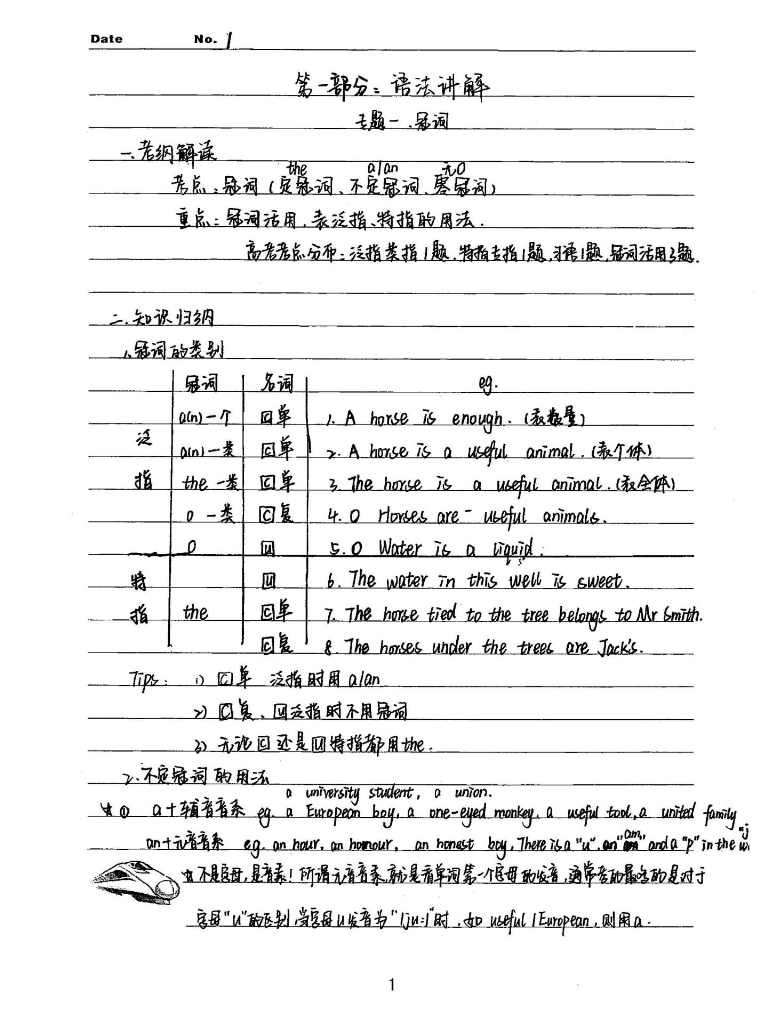 Date No. 1
第一部分：语法讲解
专题一、冠词
一.考纲解读
the a/an 无0
考点：冠词（定冠词、不定冠词、零冠词）
重点：冠词活用，表泛指、特指的用法．
高考考点分布：泛指类指1题，特指专指1题，习语1题，冠词活用3题．
二.知识归纳
1.冠词的类别
冠词 名词 eg.
泛指
a(n)一个 [C]单 1. A horse is enough.（表数量）
a(n)一类 [C]单 2. A horse is a useful animal.（表个体）
the 一类 [C]单 3. The horse is a useful animal.（表全体）
0 一类 [C]复 4. 0 Horses are useful animals.
0 [U] 5. 0 Water is a liquid.
特指
[U] 6. The water in this well is sweet.
the [C]单 7. The horse tied to the tree belongs to Mr Smith.
[C]复 8. The horses under the trees are Jack's.
Tips： 1) [C]单 泛指时用a/an
2) [C]复、[U]泛指时不用冠词
3) 无论[C]还是[U]特指都用the．
2.不定冠词的用法
a university student, a union.
☆① a+辅音音素 eg. a European boy, a one-eyed monkey, a useful tool, a united family
an+元音音素 eg. an hour, an honour, an honest boy, There is a "u", an "m" and a "p" in the
☆不是字母，是音素！所谓元音音素，就是看单词第一个字母的发音，通常考的最多的是对于
字母"u"的区别，当字母u发音为"/ju:/"时，如 useful / European，则用a．
1